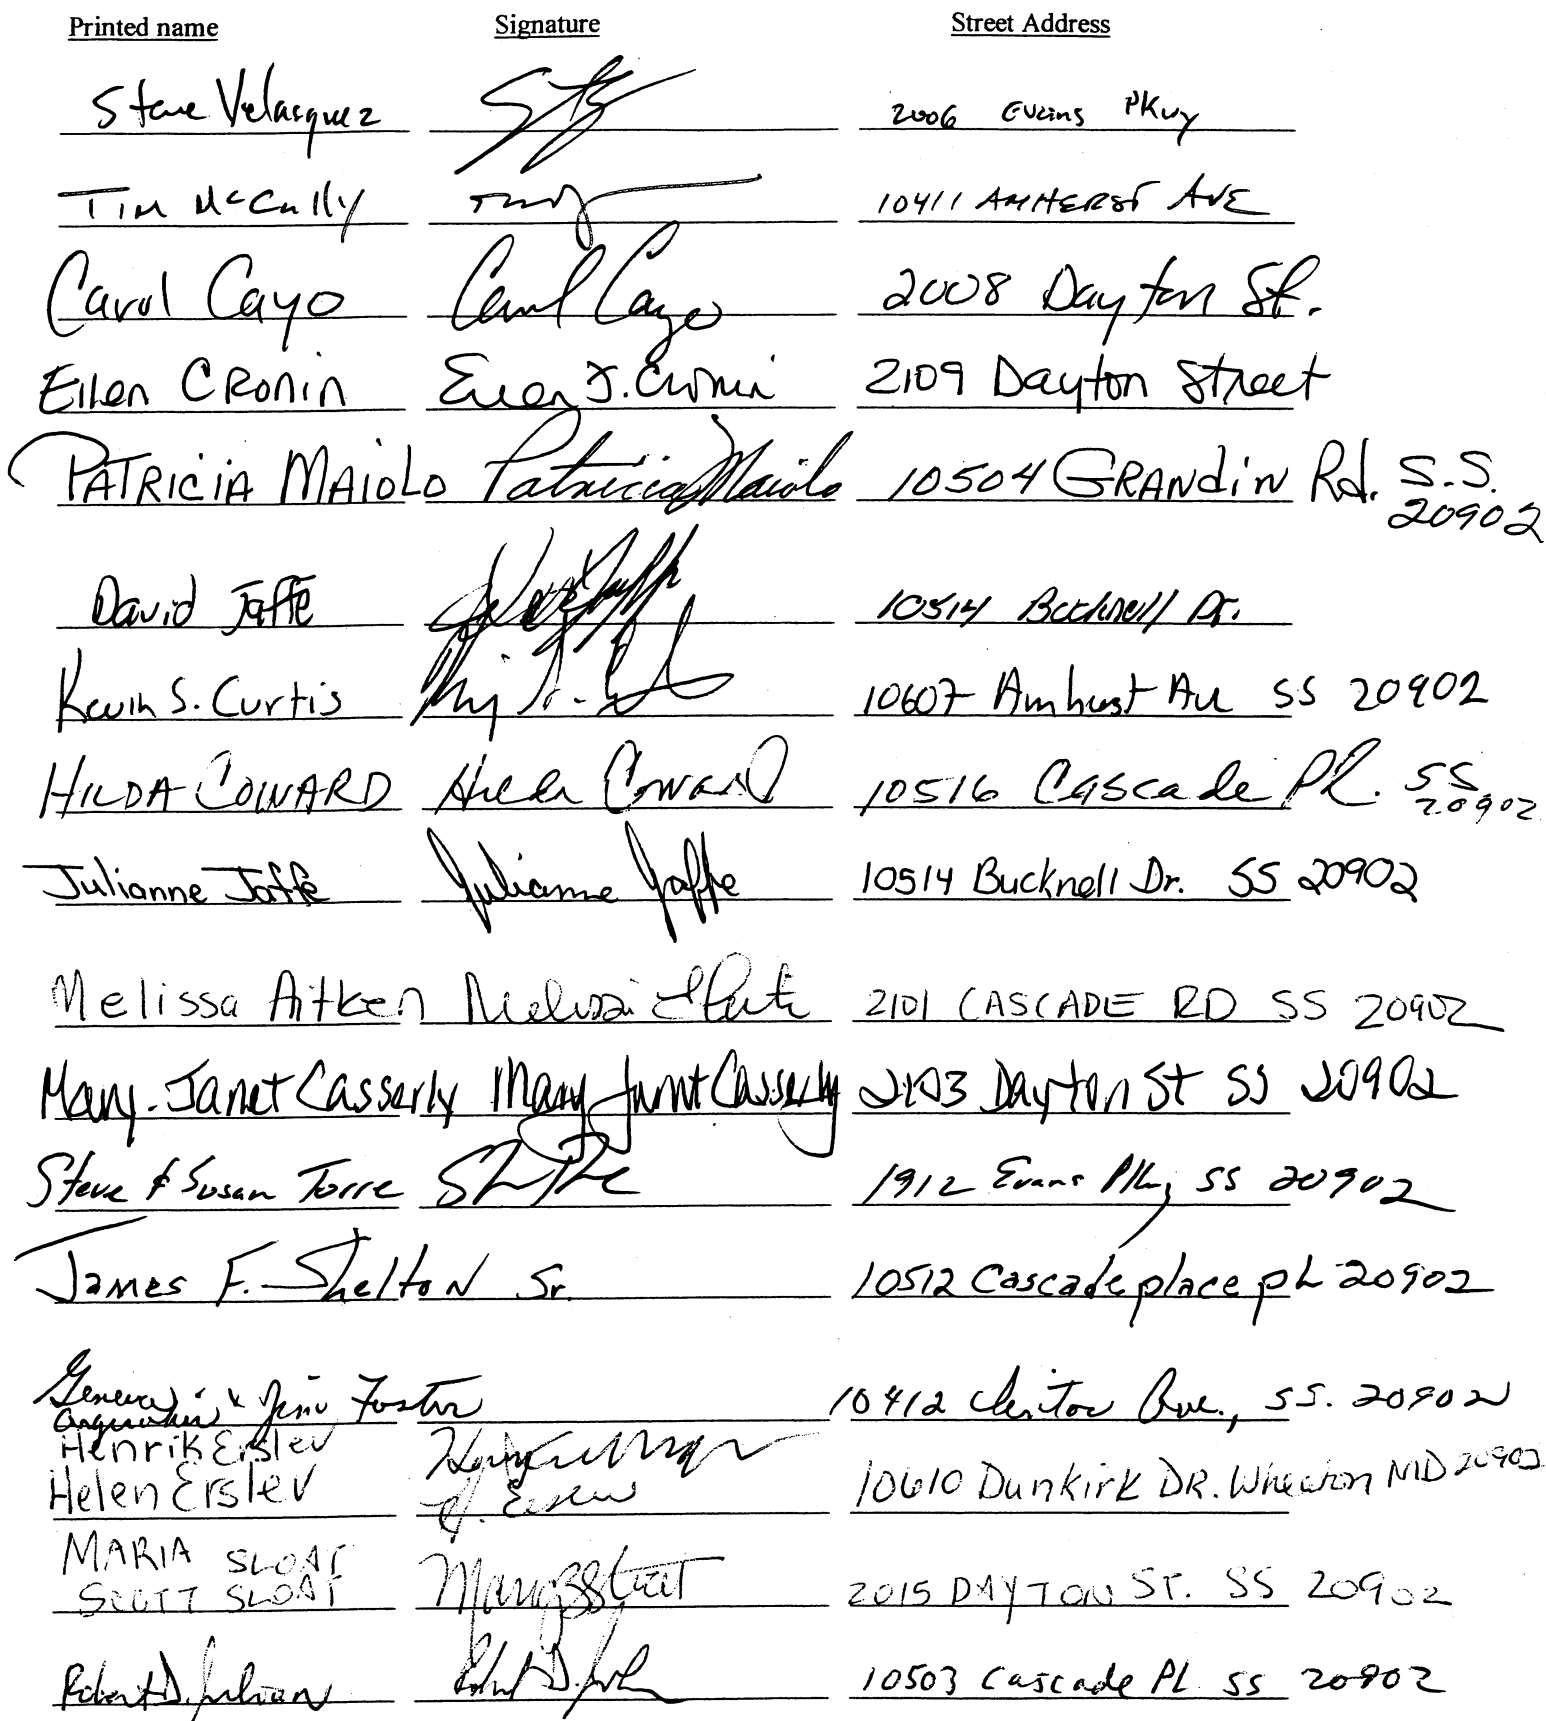 Printed name Signature Street Address
Steve Velasquez 2006 Evans Pkwy
Tim McCully 10411 AMHERST AVE
Carol Cayo Carol Cayo 2008 Dayton St.
Eileen CRONIN Eileen J. Cronin 2109 Dayton Street
PATRICIA MAIOLO Patricia Maiolo 10504 GRANDIN Rd. S.S.
20902
David Jaffe 10514 Bucknell Dr.
Kevin S. Curtis 10607 Amhust Av SS 20902
HILDA COWARD Hilda Coward 10516 Cascade Pl. SS
20902
Julianne Jaffe Julianne Jaffe 10514 Bucknell Dr. SS 20902
Melissa Aitken Melissa 2101 CASCADE RD SS 20902
Mary-Janet Casserly Mary Janet Casserly 2103 Dayton St SS 20902
Steve & Susan Torre 1912 Evans Pkwy SS 20902
James F. Shelton Sr. 10512 Cascade place pL 20902
Geneva & Jim Foster 10412 Ave., SS. 20902
Henrik Erslev
Helen Erslev H. Erslev 10610 Dunkirk DR. Wheaton MD 20902
MARIA SLOAT
SCOTT SLOAT 2015 DAYTON ST. SS 20902
Robert D. Julian Robert D. 10503 Cascade PL SS 20902